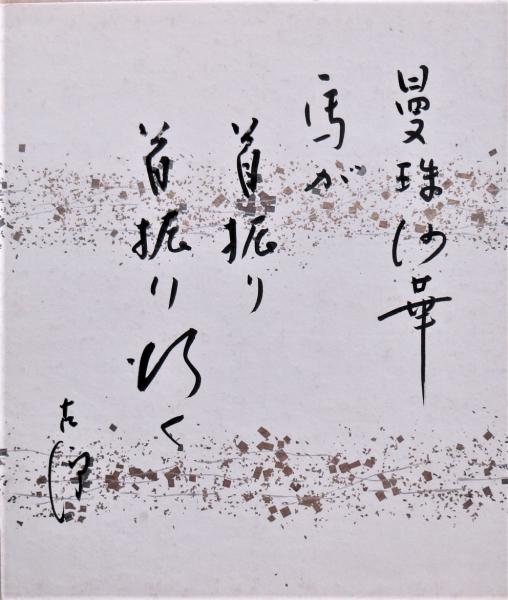 曼珠沙華
馬が
首振り
首振り行く